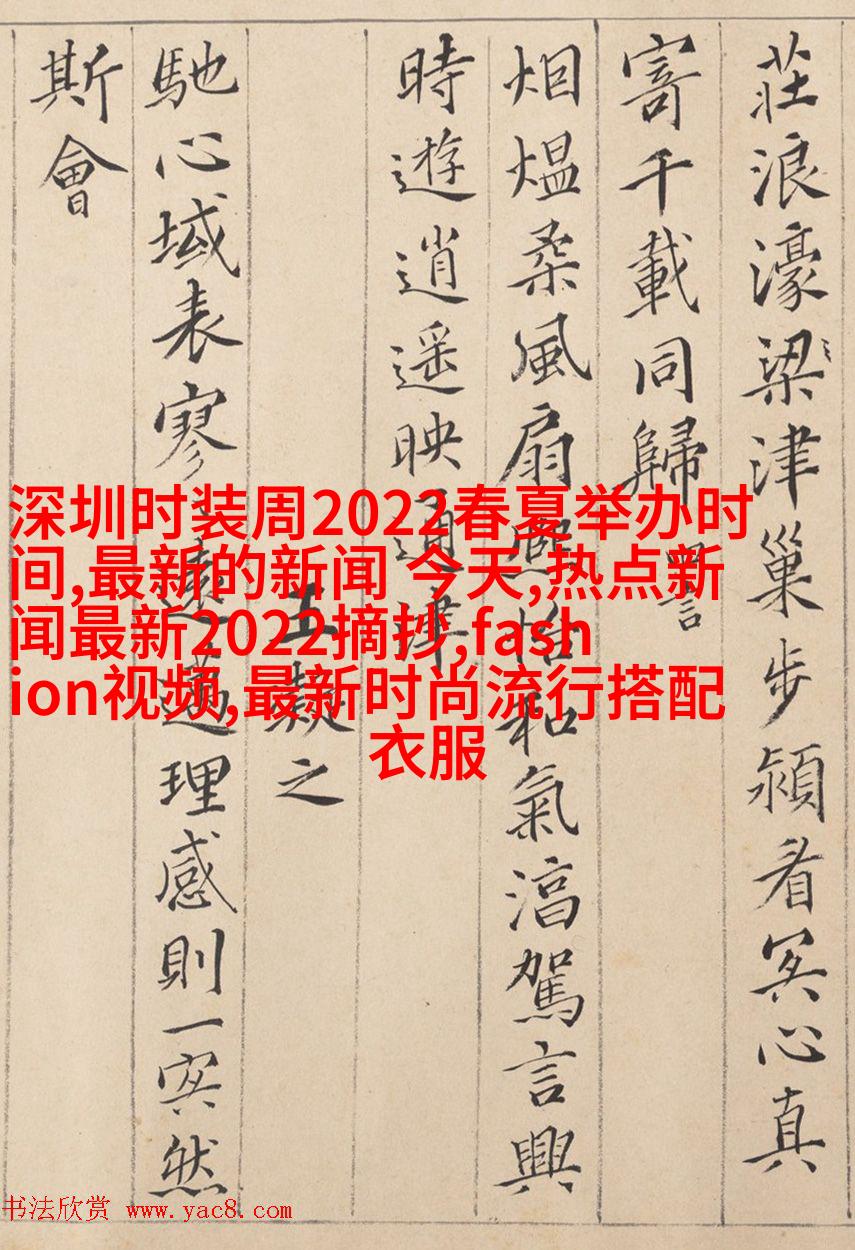 莊浪濠梁津巢步潁看冥心真
寄千載同歸 四言
烟熅柔風扇熙怡和氣湻駕言興
時遊逍遥映通津
王凝之
馳心域表寥遠邁理感則一冥然
斯會
深圳时装周2022春夏举办时
间,最新的新闻 今天,热点新
闻最新2022摘抄,fash
ion视频,最新时尚流行搭配
衣服
书法欣赏 www.yac8.com